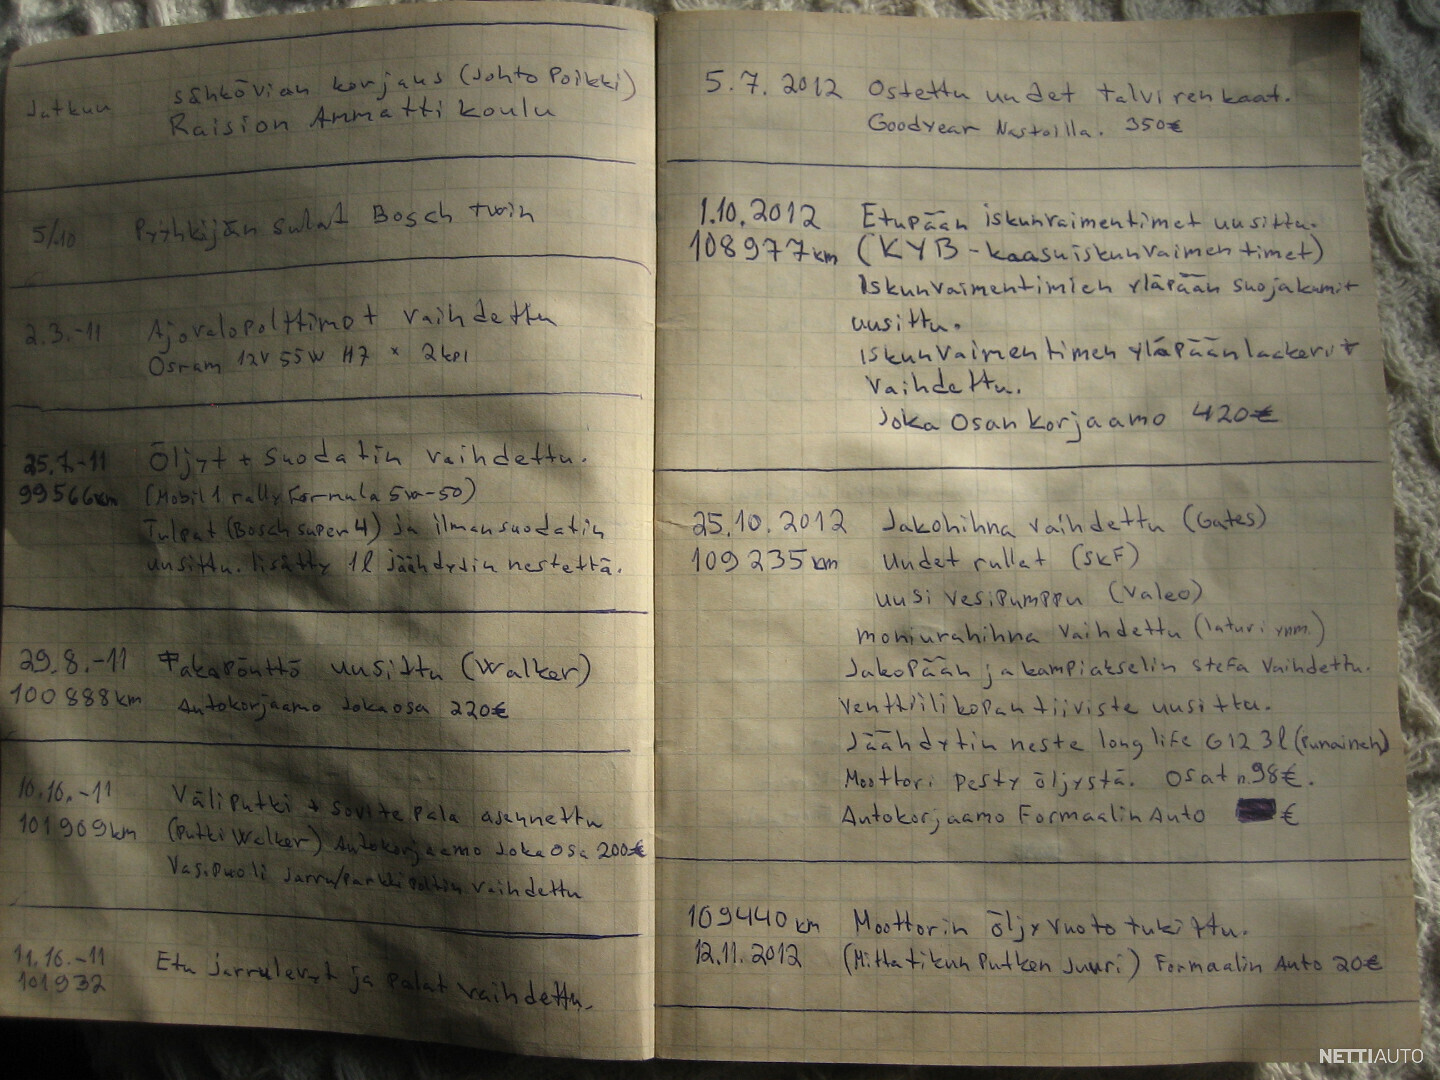 Jatkuu
sähkövian korjaus (Johto Poikki)
Raision Ammatti koulu
5/10 Pyyhkijän sulat Bosch twin
2.3.-11 Ajovalopolttimot vaihdettu
Osram 12V 55W H7 x 2kpl
25.7.-11 Öljyt + suodatin vaihdettu.
99566km (Mobil 1 rally Formula 5w-50)
Tulpat (Bosch super 4) ja ilmansuodatin
uusittu. lisätty 1l jäähdytin nestettä.
29.8.-11 Takapönttö uusittu (Walker)
100888km Autokorjaamo Jokaosa 220€
10.10.-11 Väliputki + sovite pala asennettu
101909km (Putki Walker) Autokorjaamo Joka Osa 200€
Vasipuoli Jarru/parkki polttin vaihdettu
11.10.-11 Etu jarrulevyt ja palat vaihdettu.
101932
5.7.2012 Ostettu uudet talvirenkaat.
Goodyear Nastoilla. 350€
1.10.2012 Etupään iskunvaimentimet uusittu.
108977km (KYB-kaasuiskunvaimentimet)
Iskunvaimentimien yläpään suojakumit
uusittu.
iskunvaimentimen yläpään laakerit
vaihdettu.
Joka Osan korjaamo 420€
25.10.2012 Jakohihna vaihdettu (Gates)
109235km Uudet rullat (SKF)
uusi vesipumppu (Valeo)
moniurahihna vaihdettu (laturi ynm.)
Jakopään ja kampiakselin stefa vaihdettu.
Venttiilikopan tiiviste uusittu.
Jäähdytin neste long life G12 3l (Punainen)
Moottori pesty öljystä. Osat n.98€.
Autokorjaamo Formaalin Auto €
109440km Moottorin öljyvuoto tukittu.
12.11.2012 (Mittatikun Putken Juuri) Formaalin Auto 20€
NETTIAUTO